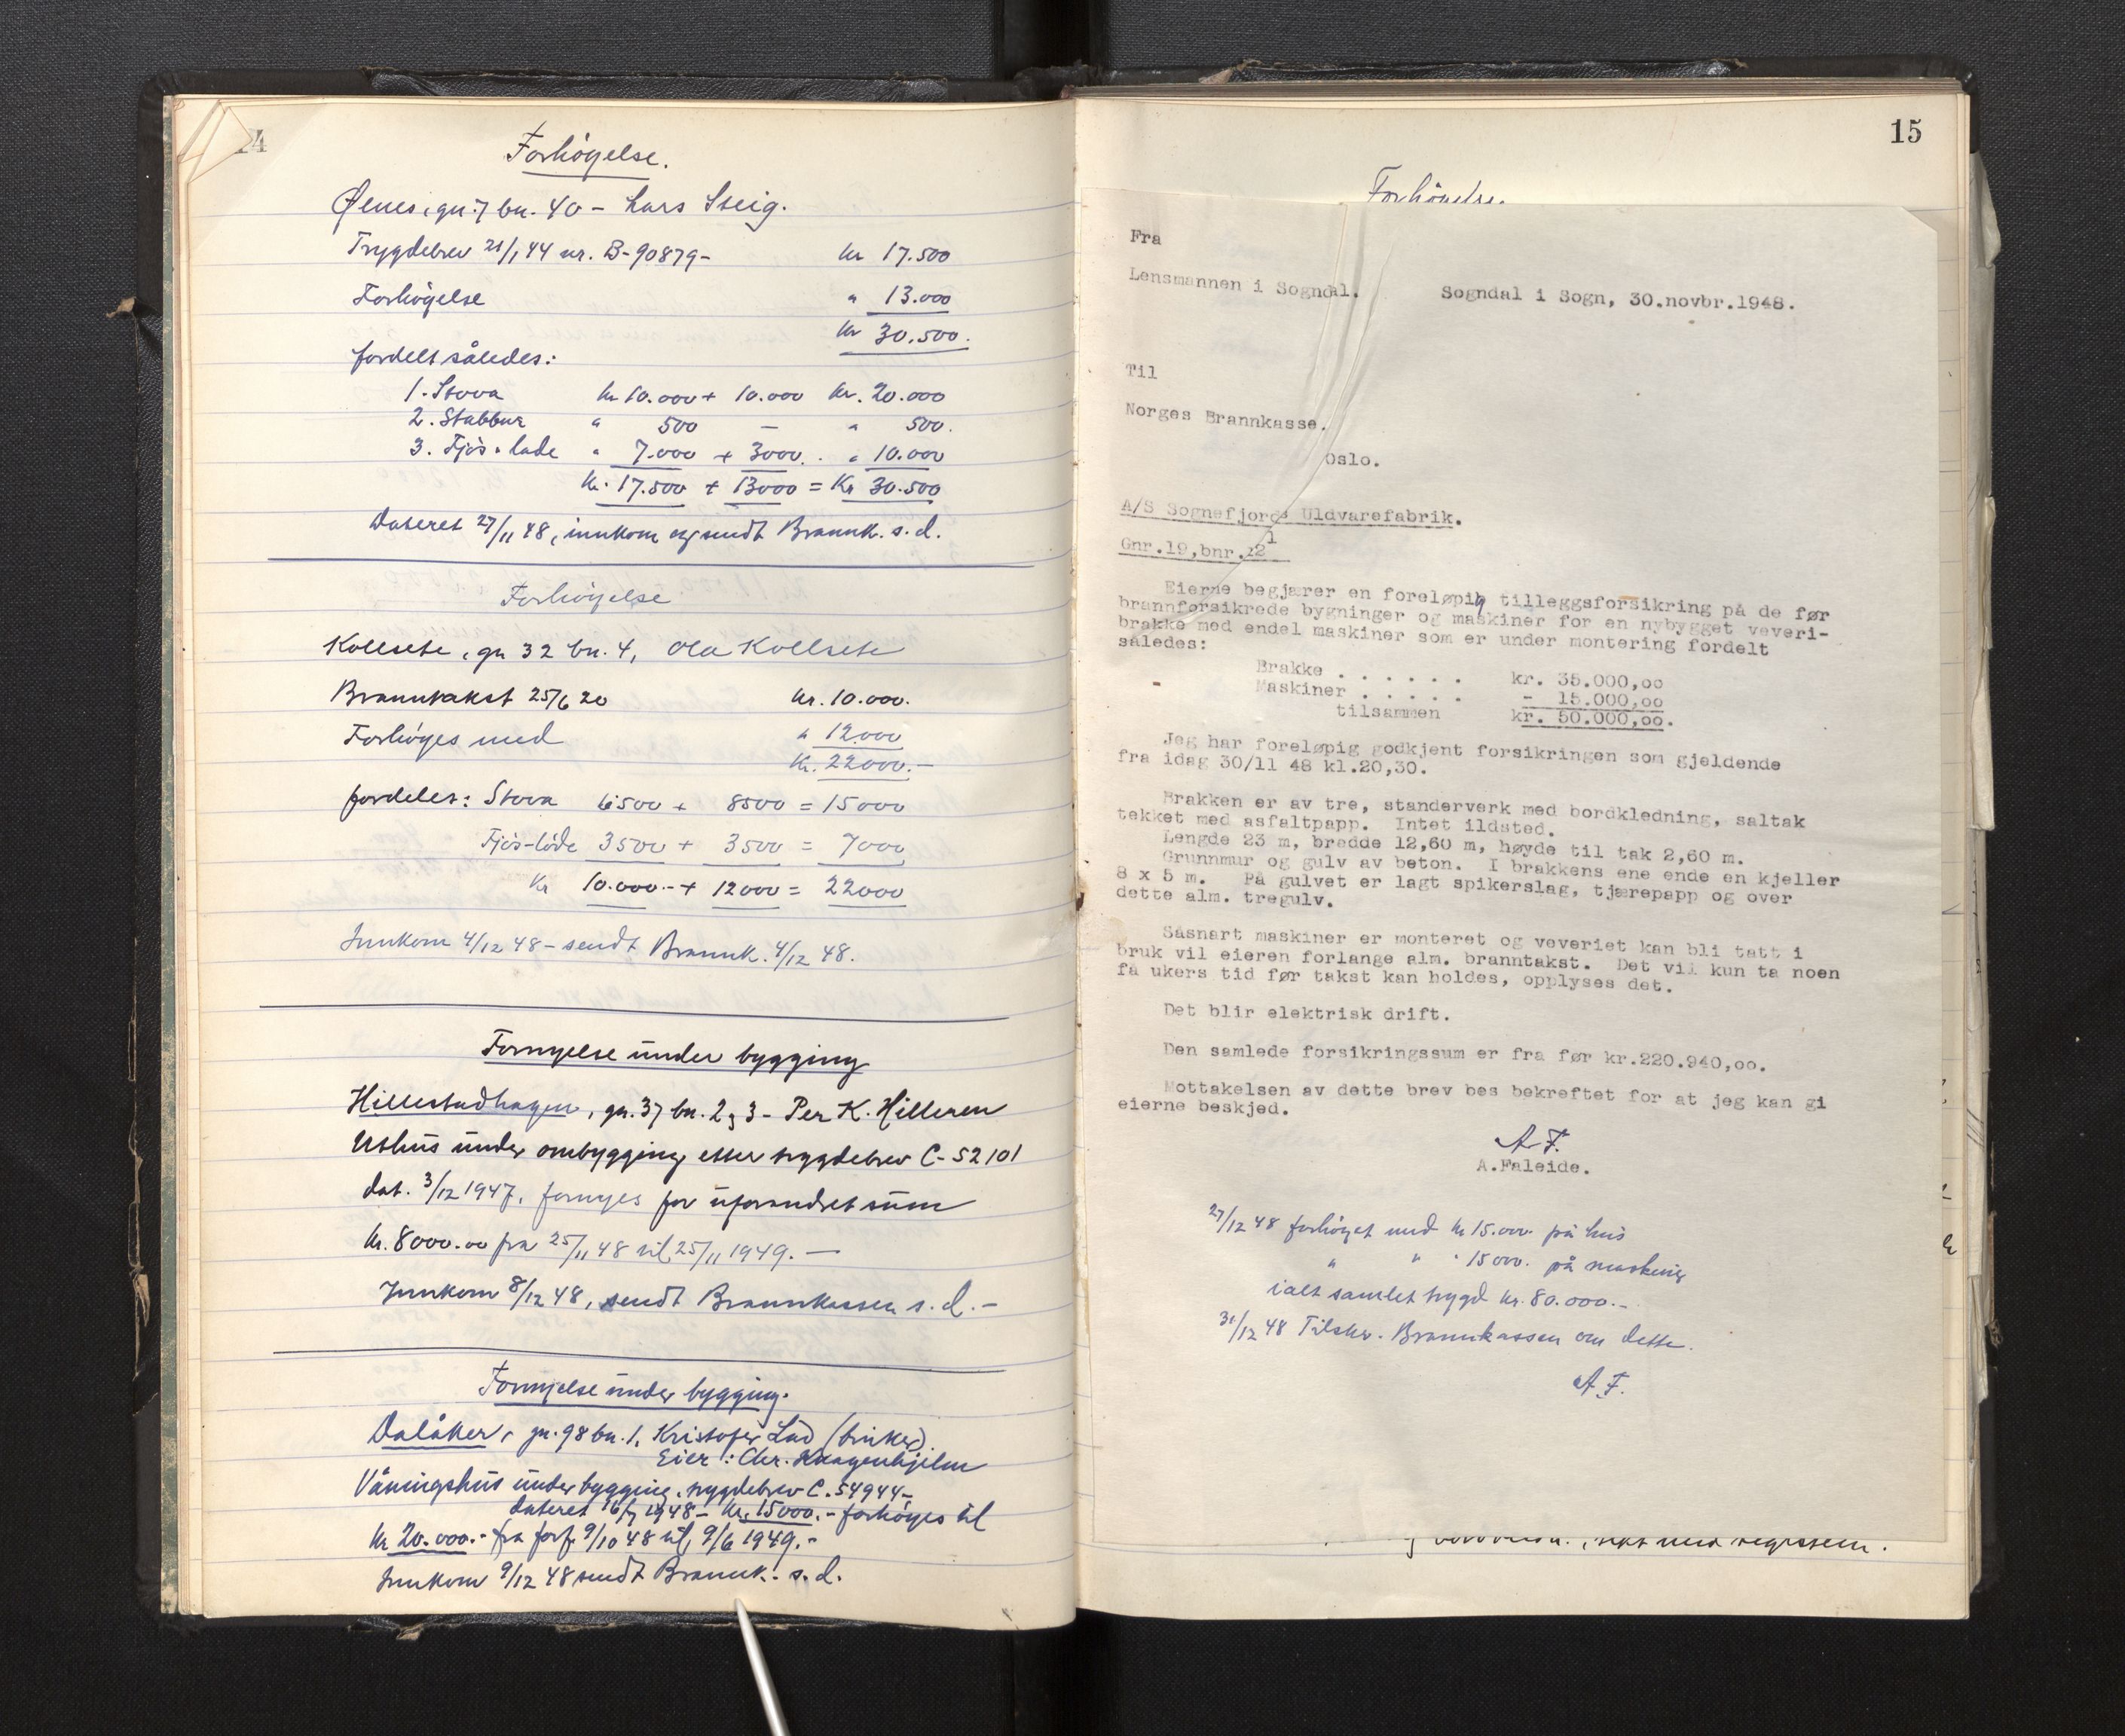 14
Forhøyelse.
Øenes, gn. 7 bn. 40 – Lars Steig.
Trygdebrev 21/1 44 nr. B-90879- kr 17.500
Forhøyelse " 13.000
kr 30.500.
fordelt således:
1. Stova kr 10.000 + 10.000 kr. 20.000
2. Stabbur " 500 – " 500.
3. Fjøs-lade " 7.000 + 3000. " 10.000
Kr. 17.500 + 13000 = Kr 30.500
Dateret 27/11 48, innkom og sendt Brannk. s.d.
Forhøyelse
Kollsete, gn 32 bn. 4, Ola Kollsete
Branntakst 25/6 20 kr. 10.000.
Forhøyes med " 12000
Kr. 22000.–
fordeles: Stova 6500 + 8500 = 15000
Fjøs-løde 3500 + 3500 = 7000
Kr 10.000.- + 12000 = 22000
Innkom 4/12 48 – sendt Brannk. 4/12 48.
Fornyelse under bygging
Hillestadhagen, gn. 37 bn. 2, 3 – Per K. Hilleren
Uthus under ombygging etter trygdebrev C-52101
dat. 3/12 1947, fornyes for uforandret sum
kr. 8000.00 fra 25/11 48 til 25/11 1949. –
Innkom 8/12 48, sendt Brannkassen s.d. –
Fornyelse under bygging.
Dalåker, gn. 98 bn. 1, Kristofer Lad (bruker).
Eier: Chr. Knagenhjelm
Våningshus under bygging, trygdebrev C. 54944-
dateret 16/7 1948 – kr. 15000.- forhøyes til
kr 20.000.- fra forf. 9/10 48 til 9/6 1949.-
Innkom 9/12 48 sendt Brannk. s.d.
15
Forhøyelse.
Fra
Lensmannen i Sogndal. Sogndal i Sogn, 30.novbr.1948.
Til
Norges Brannkasse.
Oslo.
A/S Sognefjords Uldvarefabrik.
Gnr.19,bnr.12 1
Eierne begjærer en foreløpig tilleggsforsikring på de før
brannforsikrede bygninger og maskiner for en nybygget veveri-
brakke med endel maskiner som er under montering fordelt
således:
Brakke . . . . . . kr. 35.000,oo
Maskiner . . . . . - 15.000,oo
tilsammen kr. 50.000,oo.
Jeg har foreløpig godkjent forsikringen som gjeldende
fra idag 30/11 48 kl.20,30.
Brakken er av tre, standerverk med bordkledning, saltak
tekket med asfaltpapp. Intet ildsted.
Lengde 23 m, bredde 12,60 m, høyde til tak 2,60 m.
Grunnmur og gulv av beton. I brakkens ene ende en kjeller
8 x 5 m. På gulvet er lagt spikerslag, tjærepapp og over
dette alm. tregulv.
Såsnart maskiner er monteret og veveriet kan bli tatt i
bruk vil eieren forlange alm. branntakst. Det vil kun ta noen
få ukers tid før takst kan holdes, opplyses det.
Det blir elektrisk drift.
Den samlede forsikringssum er fra før kr.220.940,oo.
Mottakelsen av dette brev bes bekreftet for at jeg kan gi
eierne beskjed.
A F.
A.Faleide.
27/12 48 forhøyet med kr 15.000. på hus
" " " 15000. på maskiner
ialt samlet trygd kr. 80.000.–
31/12 48 Tilskr. Brannkassen om dette.
A.F.